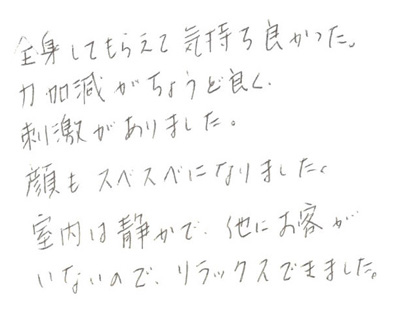 全身してもらえて気持ち良かった。
力加減がちょうど良く、
刺激がありました。
顔もスベスベになりました。
室内は静かで、他にお客が
いないので、リラックスできました。